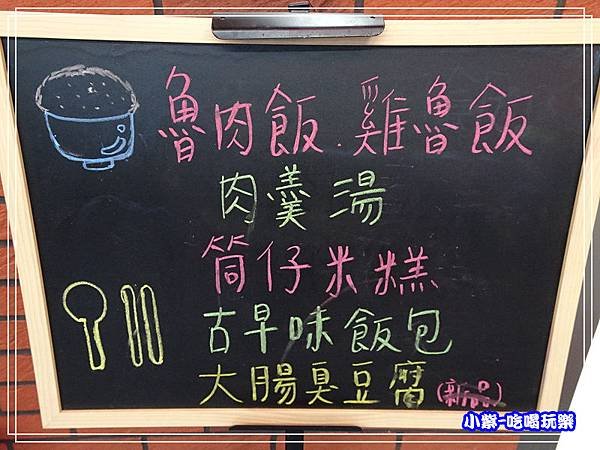 魯肉飯.雞魯飯
肉羹湯
筒仔米糕
古早味飯包
大腸臭豆腐(新品)
小紫-吃喝玩樂